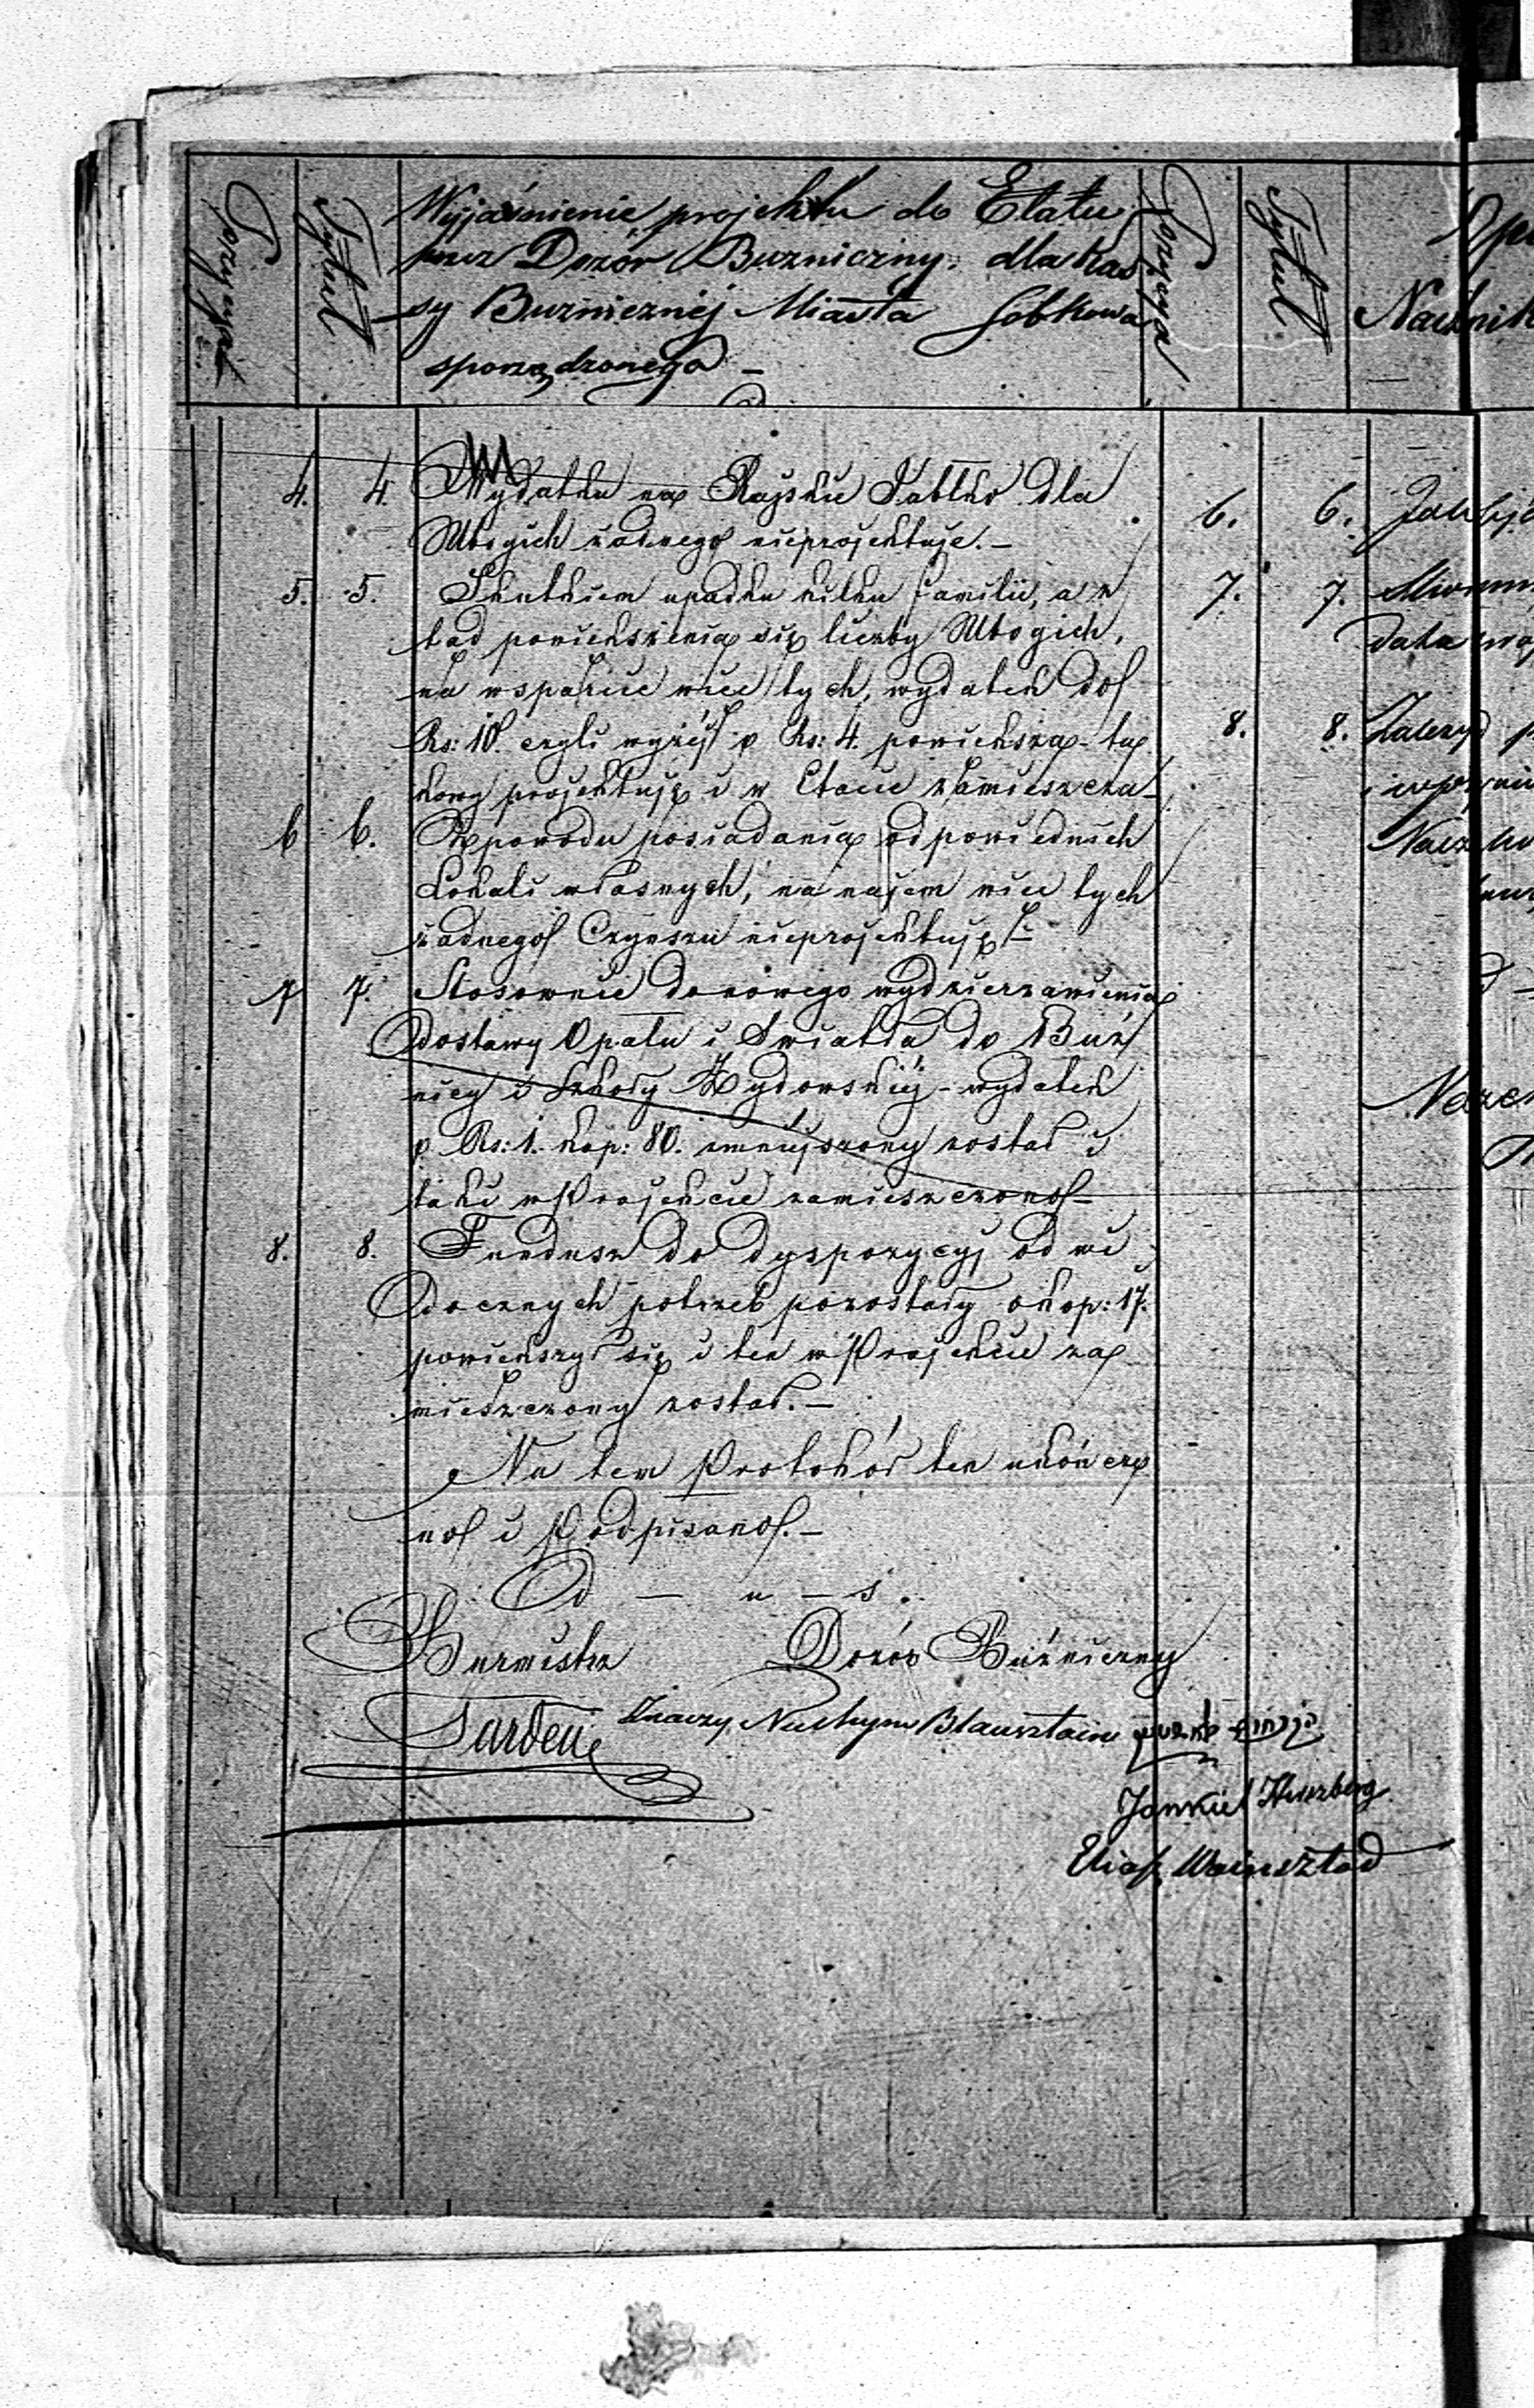 Pozycya
Tytuł
Wyjaśnienie projektu do Etatu
przez Dozór Buzniczny dla Kas
sy Bużnicznéj Miasta Sobkowa
sporządzonego –
Pozycya
Tytuł
4. 4. Wydatku na Rajskie Jabłko dla
Ubogich żadnego nieprojektuje. –
5. 5. Skutkiem upadku kilku familii, a z
tąd powiększenia się liczby Ubogich,
na wsparcie więc tych, wydatek do
Rs: 10. czyli wyżéj o Rs: 4. powiększa – ta
kowy projektuje i w Etacie zamieszcza –
6 6. Zpowodu posiadania odpowiednich
Lokali własnych, na najem więc tych
żadnego Czynszu nieprojektuje –
7 7. Stosownie donowego wydzierzawienia
dostawy Opału i Swiatła do Buż
nicy i Szkoły Żydowskiéj – wydatek
o Rs: 1. kop: 80. zmniejszony został i
taki w Projekcie zamieszczono –
8. 8. Fundusz do dyspozycyj od wi
docznych potrzeb pozostały o kop: 17.
powiększył się i ten w Projekcie za
mieszczony został. –
Na tem Protokół ten ukończo
no i Podpisano. –
Od – u – s.
Burmistrz Dozór Bużniczny
Znaczy Nuchym Blausztain
Jankiel Herzberg
Eliasz Wainsztad
6. 6.
7. 7.
8. 8.